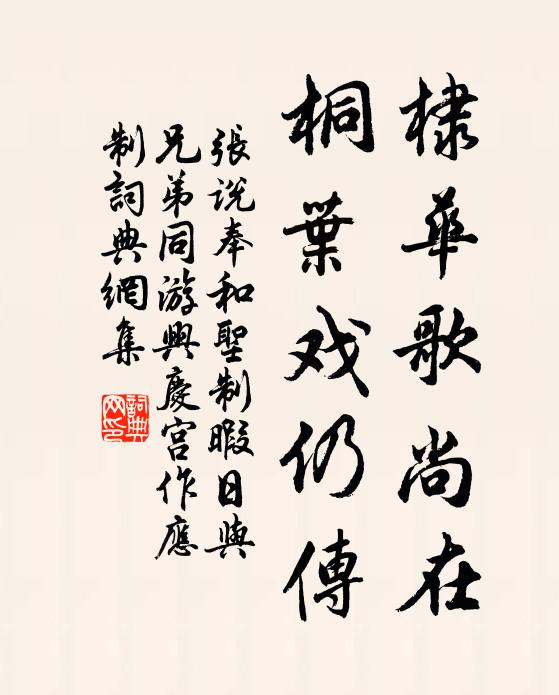 棣華歌尚在
桐葉戏仍傳
張说奉和聖制暇日與
兄弟同游興慶宮作應
制詞典網集
詞典網印